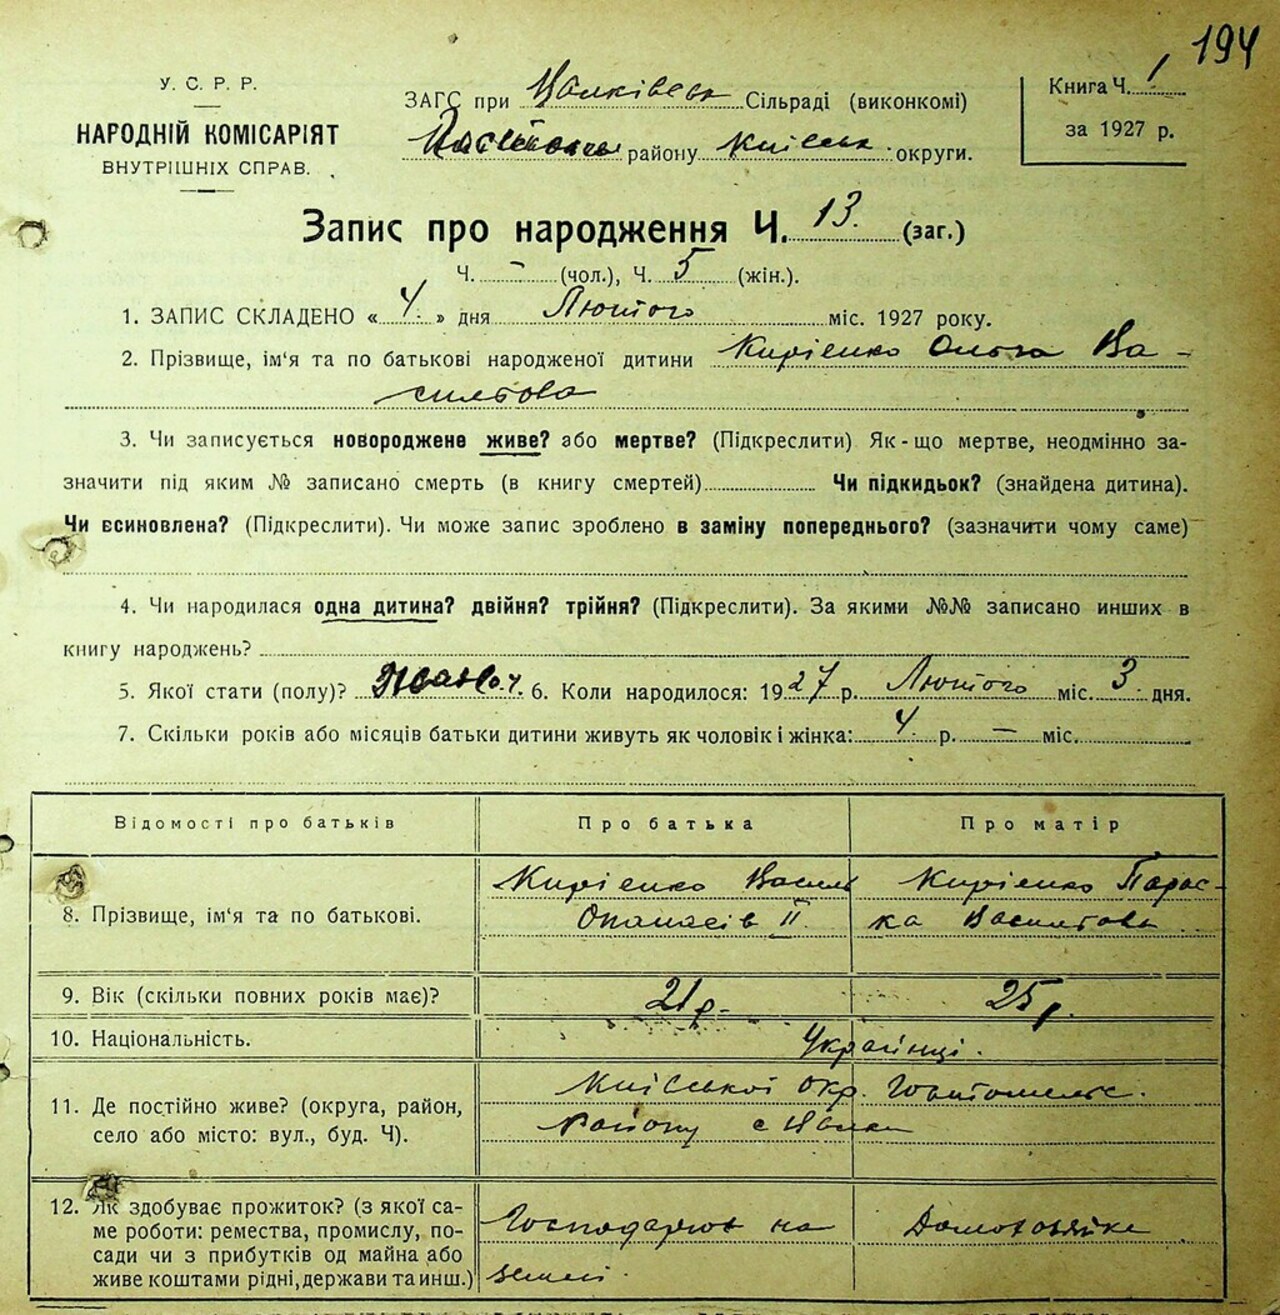 194
У. С. Р. Р.
НАРОДНІЙ КОМІСАРІЯТ
ВНУТРІШНІХ СПРАВ.
ЗАГС при Сільраді (виконкомі)
району Київськ округи.
Книга Ч. 1
за 1927 р.
Запис про народження Ч. 13. (заг.)
Ч. - (чол.), Ч. 5 (жін.).
1. ЗАПИС СКЛАДЕНО « 4 » дня Лютого міс. 1927 року.
2. Прізвище, ім‘я та по батькові народженої дитини Кирієнко Ольга Ва-
сильова
3. Чи записується новороджене живе? або мертве? (Підкреслити) Як-що мертве, неодмінно за-
значити під яким № записано смерть (в книгу смертей) Чи підкидьок? (знайдена дитина).
Чи всиновлена? (Підкреслити). Чи може запис зроблено в заміну попереднього? (зазначити чому саме)
4. Чи народилася одна дитина? двійня? трійня? (Підкреслити). За якими №№ записано инших в
книгу народжень?
5. Якої стати (полу)? 6. Коли народилося: 1927 р. Лютого міс. 3 дня.
7. Скільки років або місяців батьки дитини живуть як чоловік і жінка: 4 р. — міс.
Відомості про батьків Про батька Про матір
8. Прізвище, ім‘я та по батькові.
Кирієнко Василь
Опанасів II.
Кирієнко Парас-
ка Василева
9. Вік (скільки повних років має)? 21 р. 25 р.
10. Національність. Українці.
11. Де постійно живе? (округа, район,
село або місто: вул., буд. Ч).
Київської окр.
Району с
12. Як здобуває прожиток? (з якої са-
ме роботи: ремества, промислу, по-
сади чи з прибутків од майна або
живе коштами рідні, держави та инш.)
Господарює на
землі.
Домохозяйка